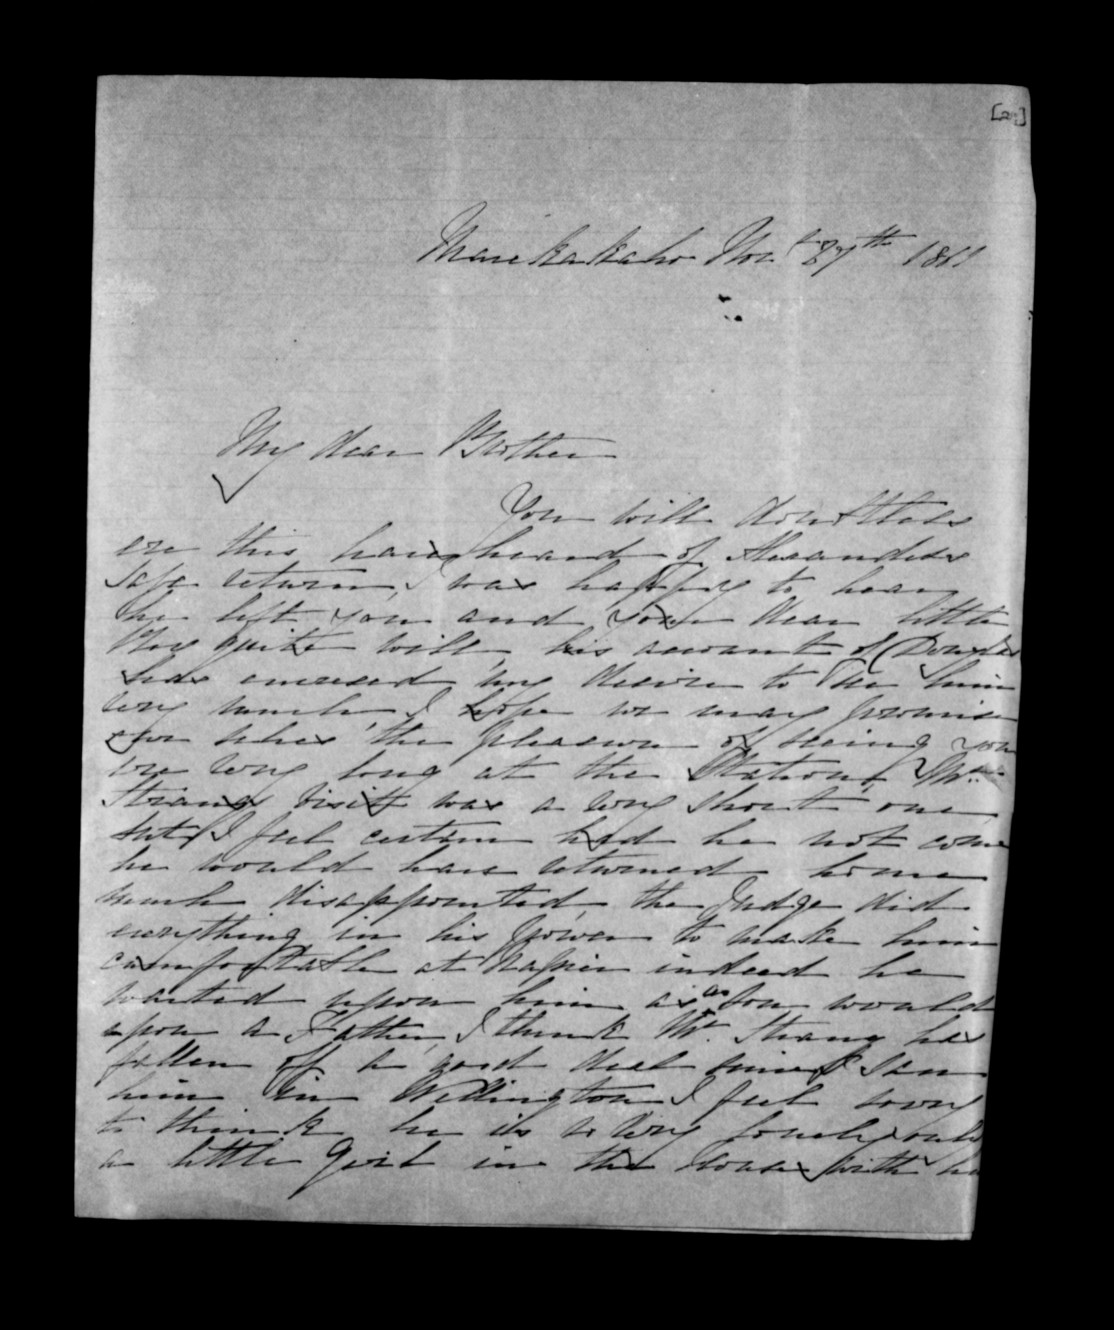 Maraekakaho Nov. 27th 1861
My dear Brother
You will doubtless
ere this have heard of Alexanders
safe return, I was happy to hear
he left you and your dear little
Boy quite well, his account of Douglas
has increased my desire to see him
very much, I hope we may promise
our selves the pleasure of seeing you
ere very long at the Station, Mr.
Strangs visitt was a very short one,
but I feel certain had he not come
he would have returned home
much disappointed, the Judge did
everything in his power to make him
comfortable at Napier indeed he
waited upon him as a Son would
upon a Father, I think Mr. Strang has
fallen off a good deal since I saw
him in Wellington I feel sorry
to think he is so very lonely only
a little Girl in the House with him